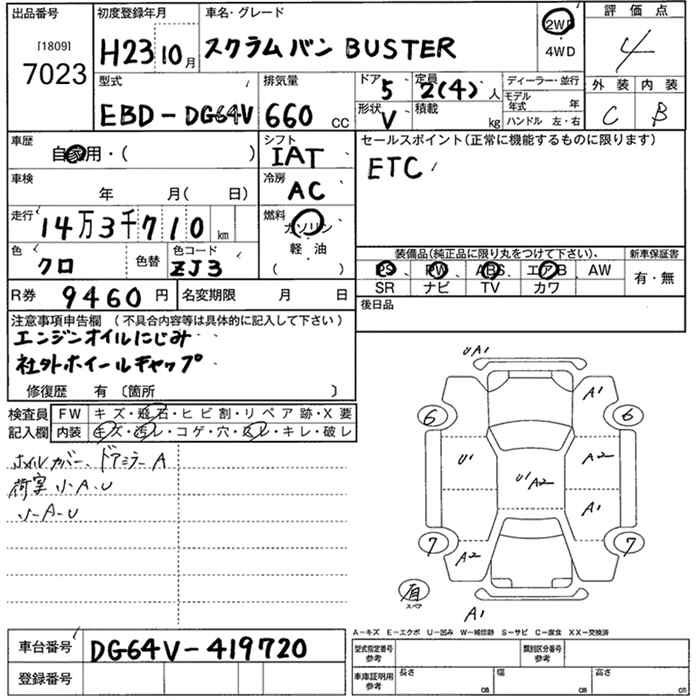 出品番号 初度登録年月 車名・グレード 評価点
[1809]
7023
H23 10月 スクラムバン BUSTER 2WD ・ 4WD 4
型式 排気量 ドア 5 定員 2(4)人 ディーラー・並行 外装 内装
EBD-DG64V 660 CC 形状 V 積載 kg モデル年式 年 ハンドル 左・右 C B
車歴 シフト セールスポイント(正常に機能するものに限ります)
自家用・( ) IAT ETC
車検 冷房
年 月( 日) AC
走行 燃料
14万3千710km ガソリン
軽・油
( ・ )
色 色替 色コード 装備品(純正品に限り丸をつけて下さい)、 新車保証書
クロ ZJ3 PS PW ABS エアB AW 有・無
SR ナビ TV カワ
R券 9460円 名変期限 月 日 後日品
注意事項申告欄 (不具合内容等は具体的に記入して下さい)
エンジンオイルにじみ
社外ホイールキャップ
修復歴 有 〔箇所 〕
検査員 FW キズ・飛石・ヒビ割・リペア跡・X要
記入欄 内装 キズ・汚レ・コゲ・穴・スレ・キレ・破レ
ホイルカバー、ドアミラーA
荷室 小A・U
小-A-U
UA1
A1
6 6
U1 U1 A2 A2
A1
7 A2 7
有
スペア
A1
A-キズ E-エクボ U-凹み W-補修跡 S-サビ C-腐食 XX-交換済
車台番号 DG64V-419720
登録番号
型式指定番号 参考 類別区分番号 参考
車庫証明用 参考 長さ cm 幅 cm 高さ cm